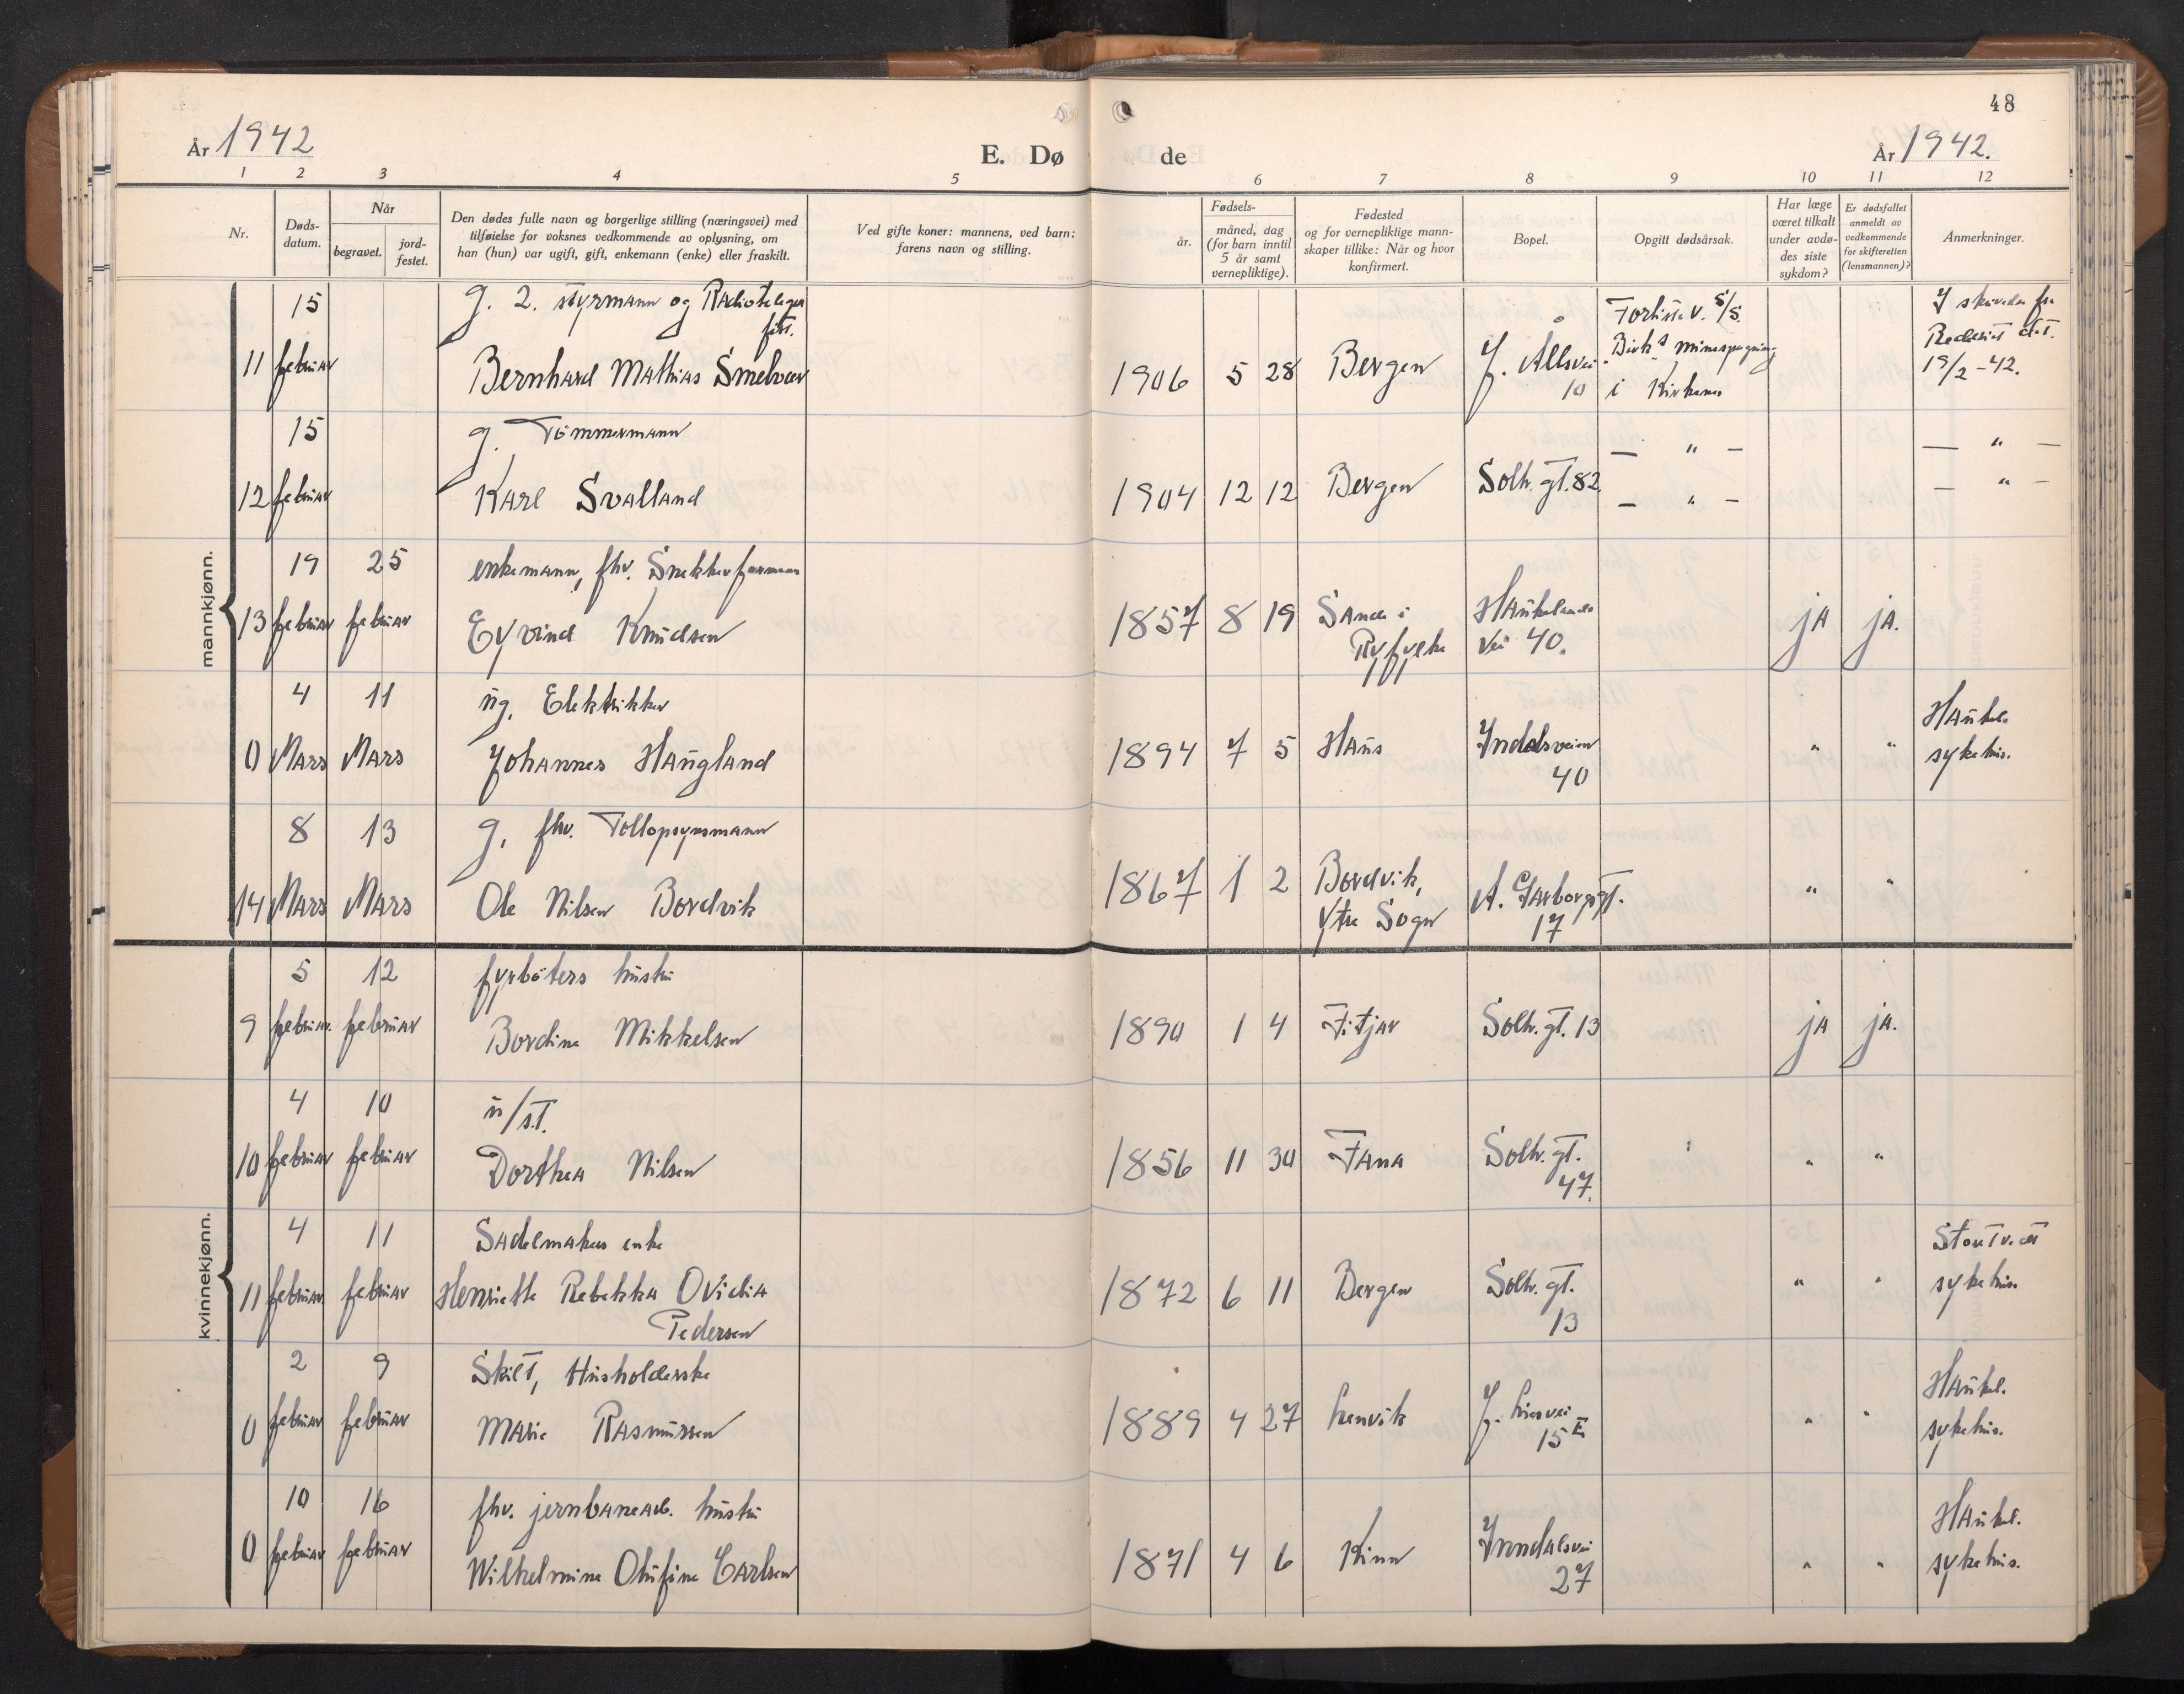 48
År 1942
E. Dø de
År 1942.
1 2 3 4 5 6 7 8 9 10 11 12
Nr.
Døds-
datum.
Når
begravet.
jord-
festet.
Den dødes fulle navn og borgerlige stilling (næringsvei) med
tilføielse for voksnes vedkommende av oplysning, om
han (hun) var ugift, gift, enkemann (enke) eller fraskilt.
Ved gifte koner: mannens, ved barn:
farens navn og stilling.
Fødsels-
år.
måned, dag
(for barn inntil
5 år samt
vernepliktige).
Fødested
og for vernepliktige mann-
skaper tillike: Når og hvor
konfirmert.
Bopel.
Opgitt dødsårsak.
Har læge
været tilkalt
under avdø-
des siste
sykdom?
Er dødsfallet
anmeldt av
vedkommende
for skifteretten
(lensmannen)?
Anmerkninger.
mannkjønn.
15 g. 2. styrmann og
11 februar Bernhard Mathias Smelvær 1906 5 28 Bergen J. Allsvei
10
Forlist v. S/S.
"Birk"s minesprgning
i Kirkenes
I skrivelse fra
Rederiet dat.
19/2-42.
15 g. Tömmermann — " — — " —
12 februar Karl Svalland 1904 12 12 Bergen Solh. gt. 82. — " — — " —
19 25 enkemann, fhv. Snekkerformann
13 februar februar Eyvind Knudsen 1857 8 19 Sande i
Ryfylke
Haukelands
vei 40.
ja ja.
4 11 ug. Elektrikker
0 Mars Mars Johannes Haugland 1894 7 5 Haus Indalsveien
40
" "
Haukel.
sykehus.
8 13 g. fhv. Tollopsynsmann
14 Mars Mars Ole Nilsen Bordvik 1867 1 2 Bordvik,
Ytre Sogn
A. Garborgsgt.
17
" "
kvinnekjønn.
5 12 fyrböters hustru
9 februar. februar Bordine Mikkelsen 1890 1 4 Fitjar Solh. gt. 13 ja ja.
4 10 u/st.
10 februar februar Dorthea Nilsen 1856 11 30 Fana Solh. gt.
47.
" "
4 11 Sadelmakers enke
11 februar. februar Henriette Rebekka Ovidia
Pedersen
1872 6 11 Bergen Solh. gt.
13
" "
sykehus.
2 9 Skilt, Husholderske
0 februar februar Marie Rasmussen 1889 4 27 Lenvik J. Liesvei
15 E
" "
Haukel.
sykehus.
10 16 fhv. jernbanearb. hustru
0 februar februar Wilhelmine Olufine Carlsen 1871 4 6 Kinn Inndalsvei
27
" "
Haukel.
sykehus.